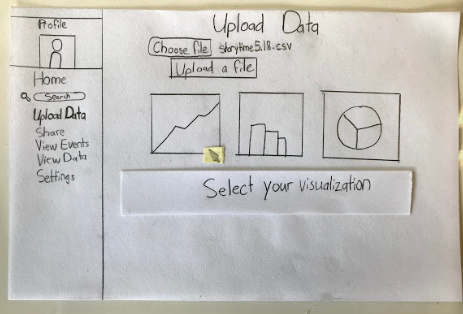 Profile
Home
Search
Upload Data
Share
View Events
View Data
Settings
Upload Data
Choose file storytime5.18.csv
Upload a file
Select your visualization